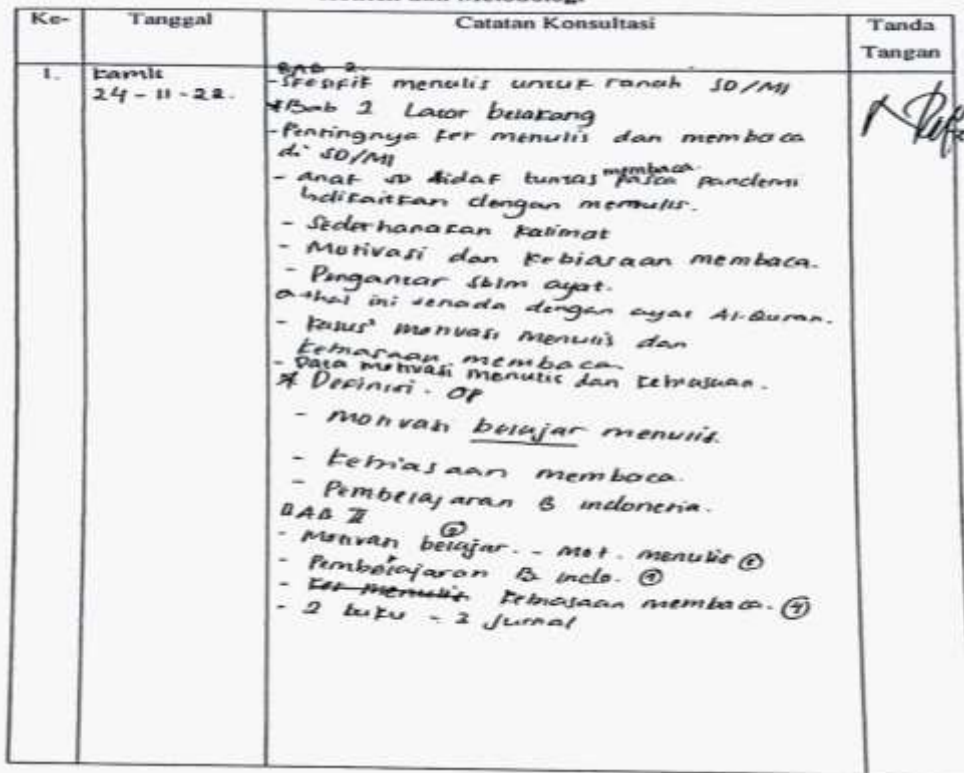 Ke- Tanggal Catatan Konsultasi Tanda Tangan
1. Kamis
24-11-22.
BAB 2.
- Spesifik menulis untuk ranah SD/MI
* Bab 1 Lator belakang
- Pentingnya ket menulis dan membaca
di SD/MI
- anak SD tidak tuntas membaca pasca pandemi
dikaitkan dengan menulis.
- Sederhanakan kalimat
- Motivasi dan kebiasaan membaca.
- Pengantar sblm ayat.
hal ini senada dengan ayat Al-Quran.
- kasus² motivasi menulis dan
kebiasaan membaca
- Data motivasi menulis dan kebiasaan.
* Definisi. OP
- Motivasi belajar menulis.
- kebiasaan membaca.
- Pembelajaran B indonesia.
BAB II
- Motivasi belajar. - Mot. menulis
- Pembelajaran B indo.
- Ket menulis kebiasaan membaca.
- 2 buku - 2 Jurnal